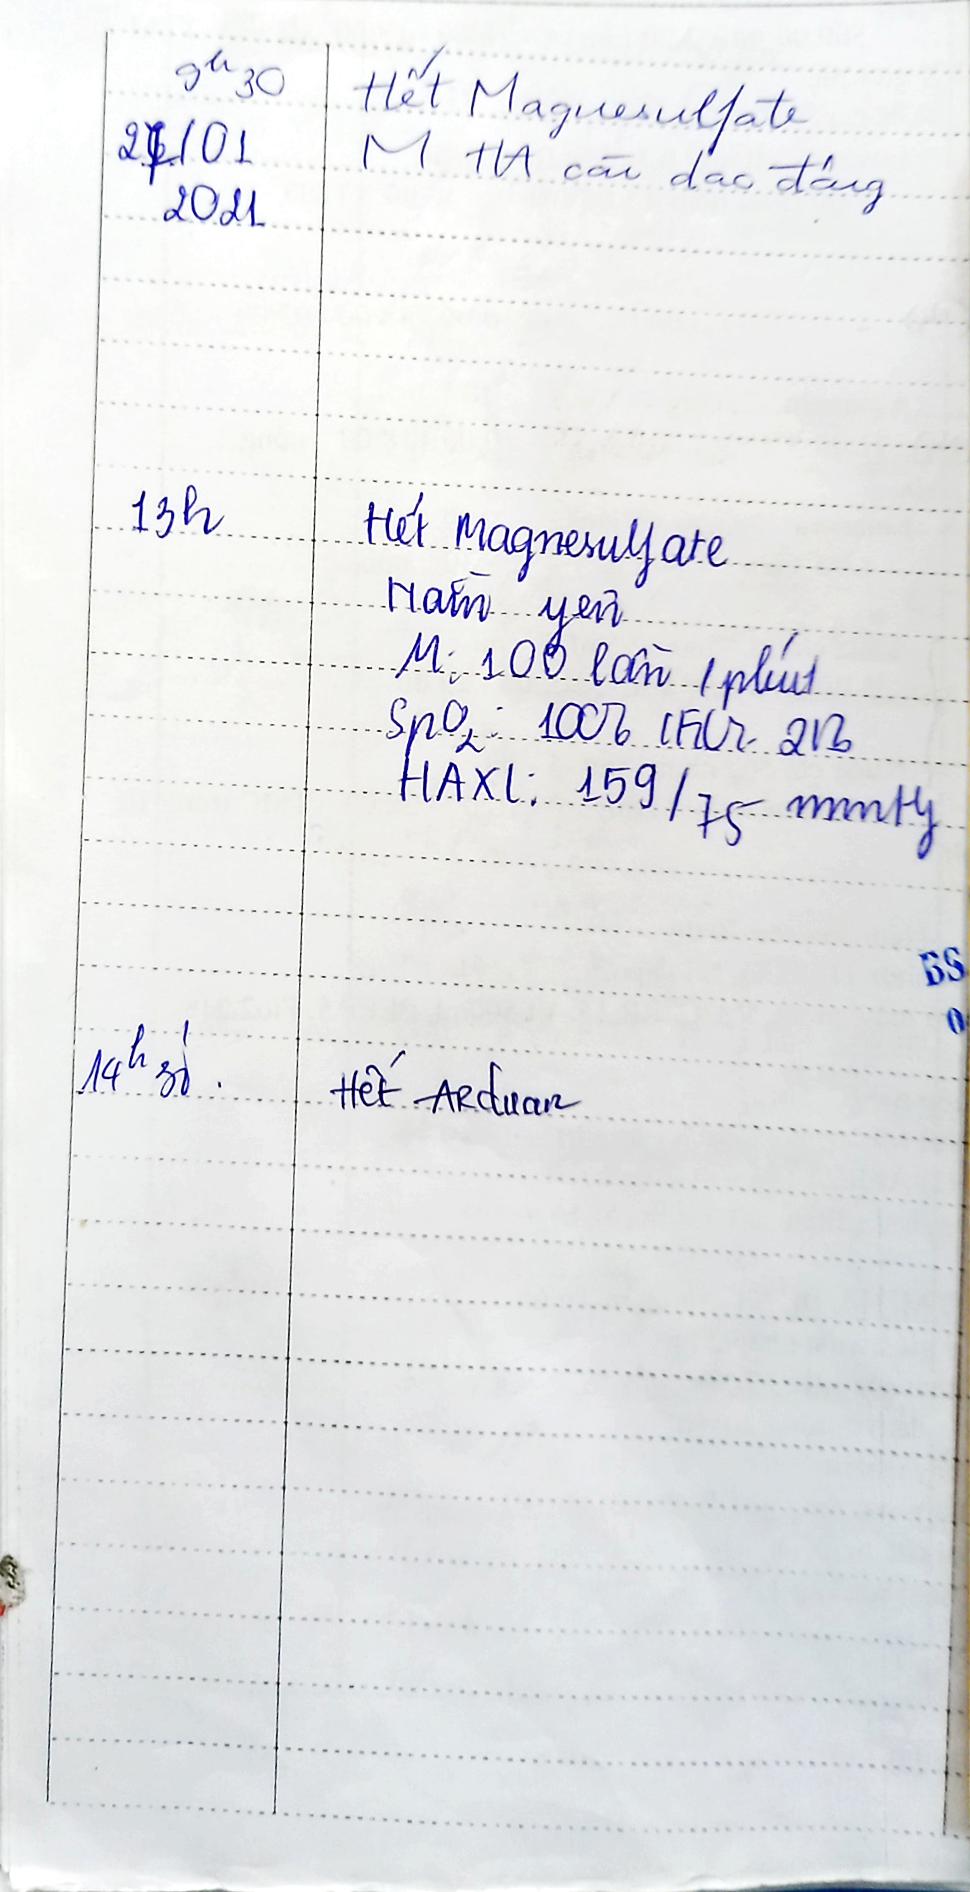 9h30 Hết Magnesulfate
M HA còn dao động
/01
2021
13h Hết Magnesulfate
Nằm yên
M: 100 lần / phút
SpO2: 100% 21%
HAXL: 159/75 mmHg
BS
14h30. Hết Arduan